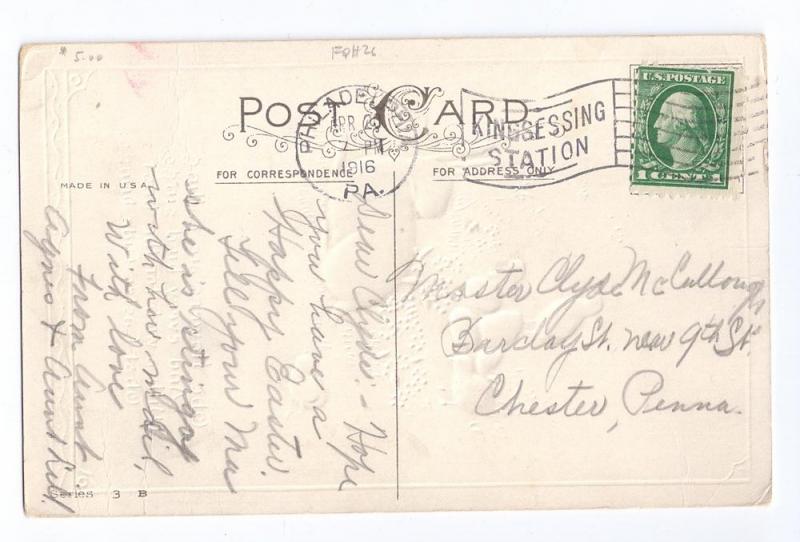 $ 5.00
FQH26
POST CARD
PHILADELPHIA
APR
PM
1916
PA.
KINGSESSING
STATION
U.S. POSTAGE
1 CENT 1
FOR CORRESPONDENCE
FOR ADDRESS ONLY
MADE IN U.S.A.
Dear Clyde:- Hope
you have a
Happy Easter.
Tell your Ma
she is stingy
with her mail,
With love
from Aunt
Agnes & Aunt Lill.
Master Clyde McCullough
Barclay St. near 9th St.
Chester, Penna.
Series 3 B